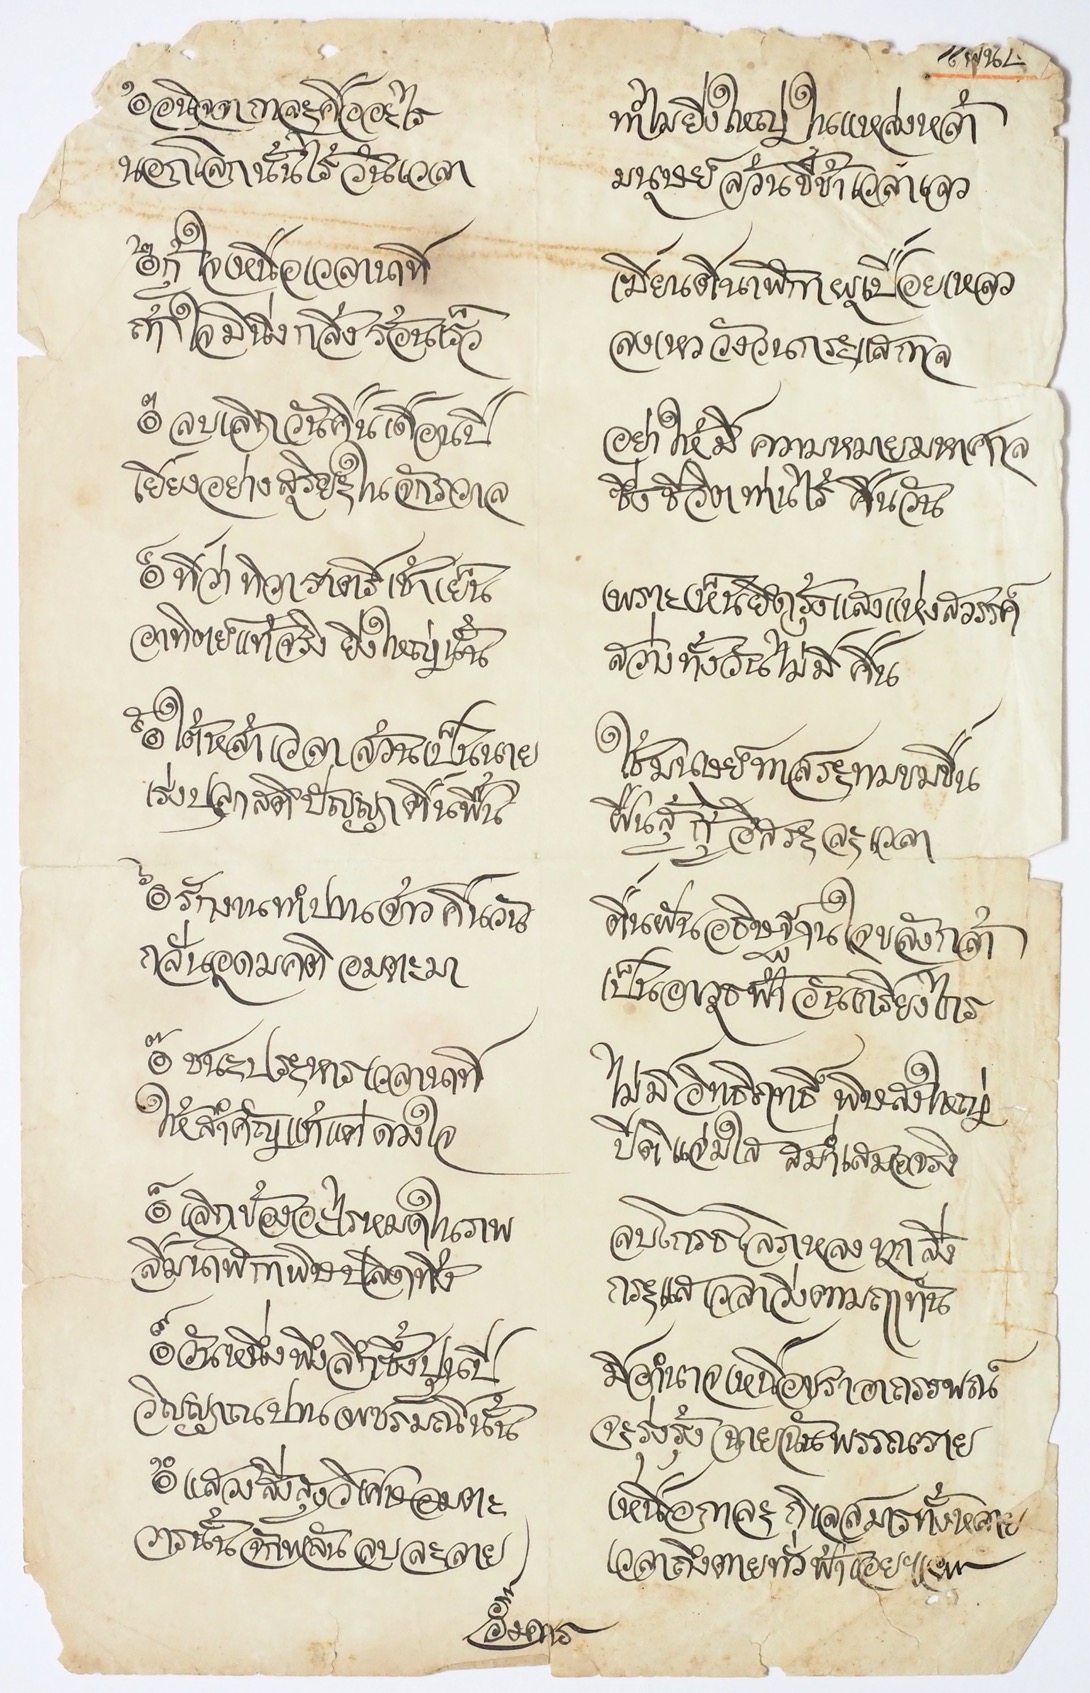 ๑๏ อนิจจา กาละคืออะไร ทำไมยิ่งใหญ่ในแหล่งหล้า
นอกโลกนั้นไร้วันเวลา มนุษย์ล้วนขี้ข้าเวลาเลว
๒๏ กู้ใจเหนือเวลานาที เฆี่ยนตีนาฬิกาผุเปื่อยเหลว
ถ้าใจมินิ่งกลิ้งร้อนเร็ว ลงเหววังวนกระแสกาล
๓๏ ลบเลิกวันคืนเดือนปี อย่าให้มีความหมายมหาศาล
เยี่ยงอย่างสุริยะในจักรวาล ซึ่งชีวิตท่านไร้คืนวัน
๔๏ ที่ว่าทิวาราตรีเช้าเย็น เพราะเห็นยึดรุ้งแสงแห่งสวรรค์
อาทิตย์แท้จริงยิ่งใหญ่นั้น สว่างทั้งวันไม่มีคืน
๕๏ ใต้หล้าเวลาล้วนเป็นนาย ใช้มนุษย์ทาสระทมขมขื่น
เร่งปลุกสติปัญญาตื่นฟื้น ฝืนสู้กู้อิสระละเวลา
๖๏ รักงานทำปานข้าวคืนวัน ตื่นฝันอธิษฐานใจขลังกล้า
กลั่นอุดมคติอมตะมา เป็นอาวุธฟ้าอันเกรียงไกร
๗๏ ชนะประหารเวลานาที ไม่มีอิทธิฤทธิ์พิษสงใหญ่
ให้สำคัญแท้แต่ดวงใจ ปีติแจ่มใสสม่ำเสมอจริง
๘๏ เลิกข้องอะไรหมดในภพ ลบโกรธโลภหลงทุกสิ่ง
ลืมนาฬิกาพิษปลิดทิ้ง กระแสเวลาวิ่งตามถาทัน
๙๏ วันหนึ่งพึงลึกซึ้งปานปี มีอำนาจเหนือชราอาถรรพณ์
วิญญาณปานเพชรมณีนั้น จะรุ่งรุ้งฉายฉันพรรณราย
๑๐๏ แสวงสิ่งสูงวิเศษอมตะ เหนือกาละกิเลสมารทั้งหลาย
วารนั้นจักพลันลบละลาย เวลาถึงตายทั่วฟ้าเอย
อังคาร